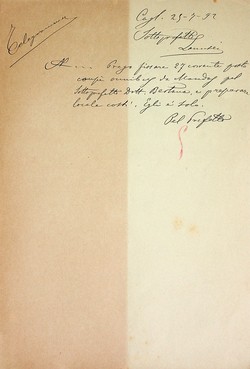 Telegramma
Cagl. 25-7-92
Sottoprefetto
Lanusei
Prego fissare 27 corrente posto
coupé omnibus da Mandas pel
sottoprefetto Dott. Bertana, e preparare
locale costì. Egli è solo.
Pel Prefetto